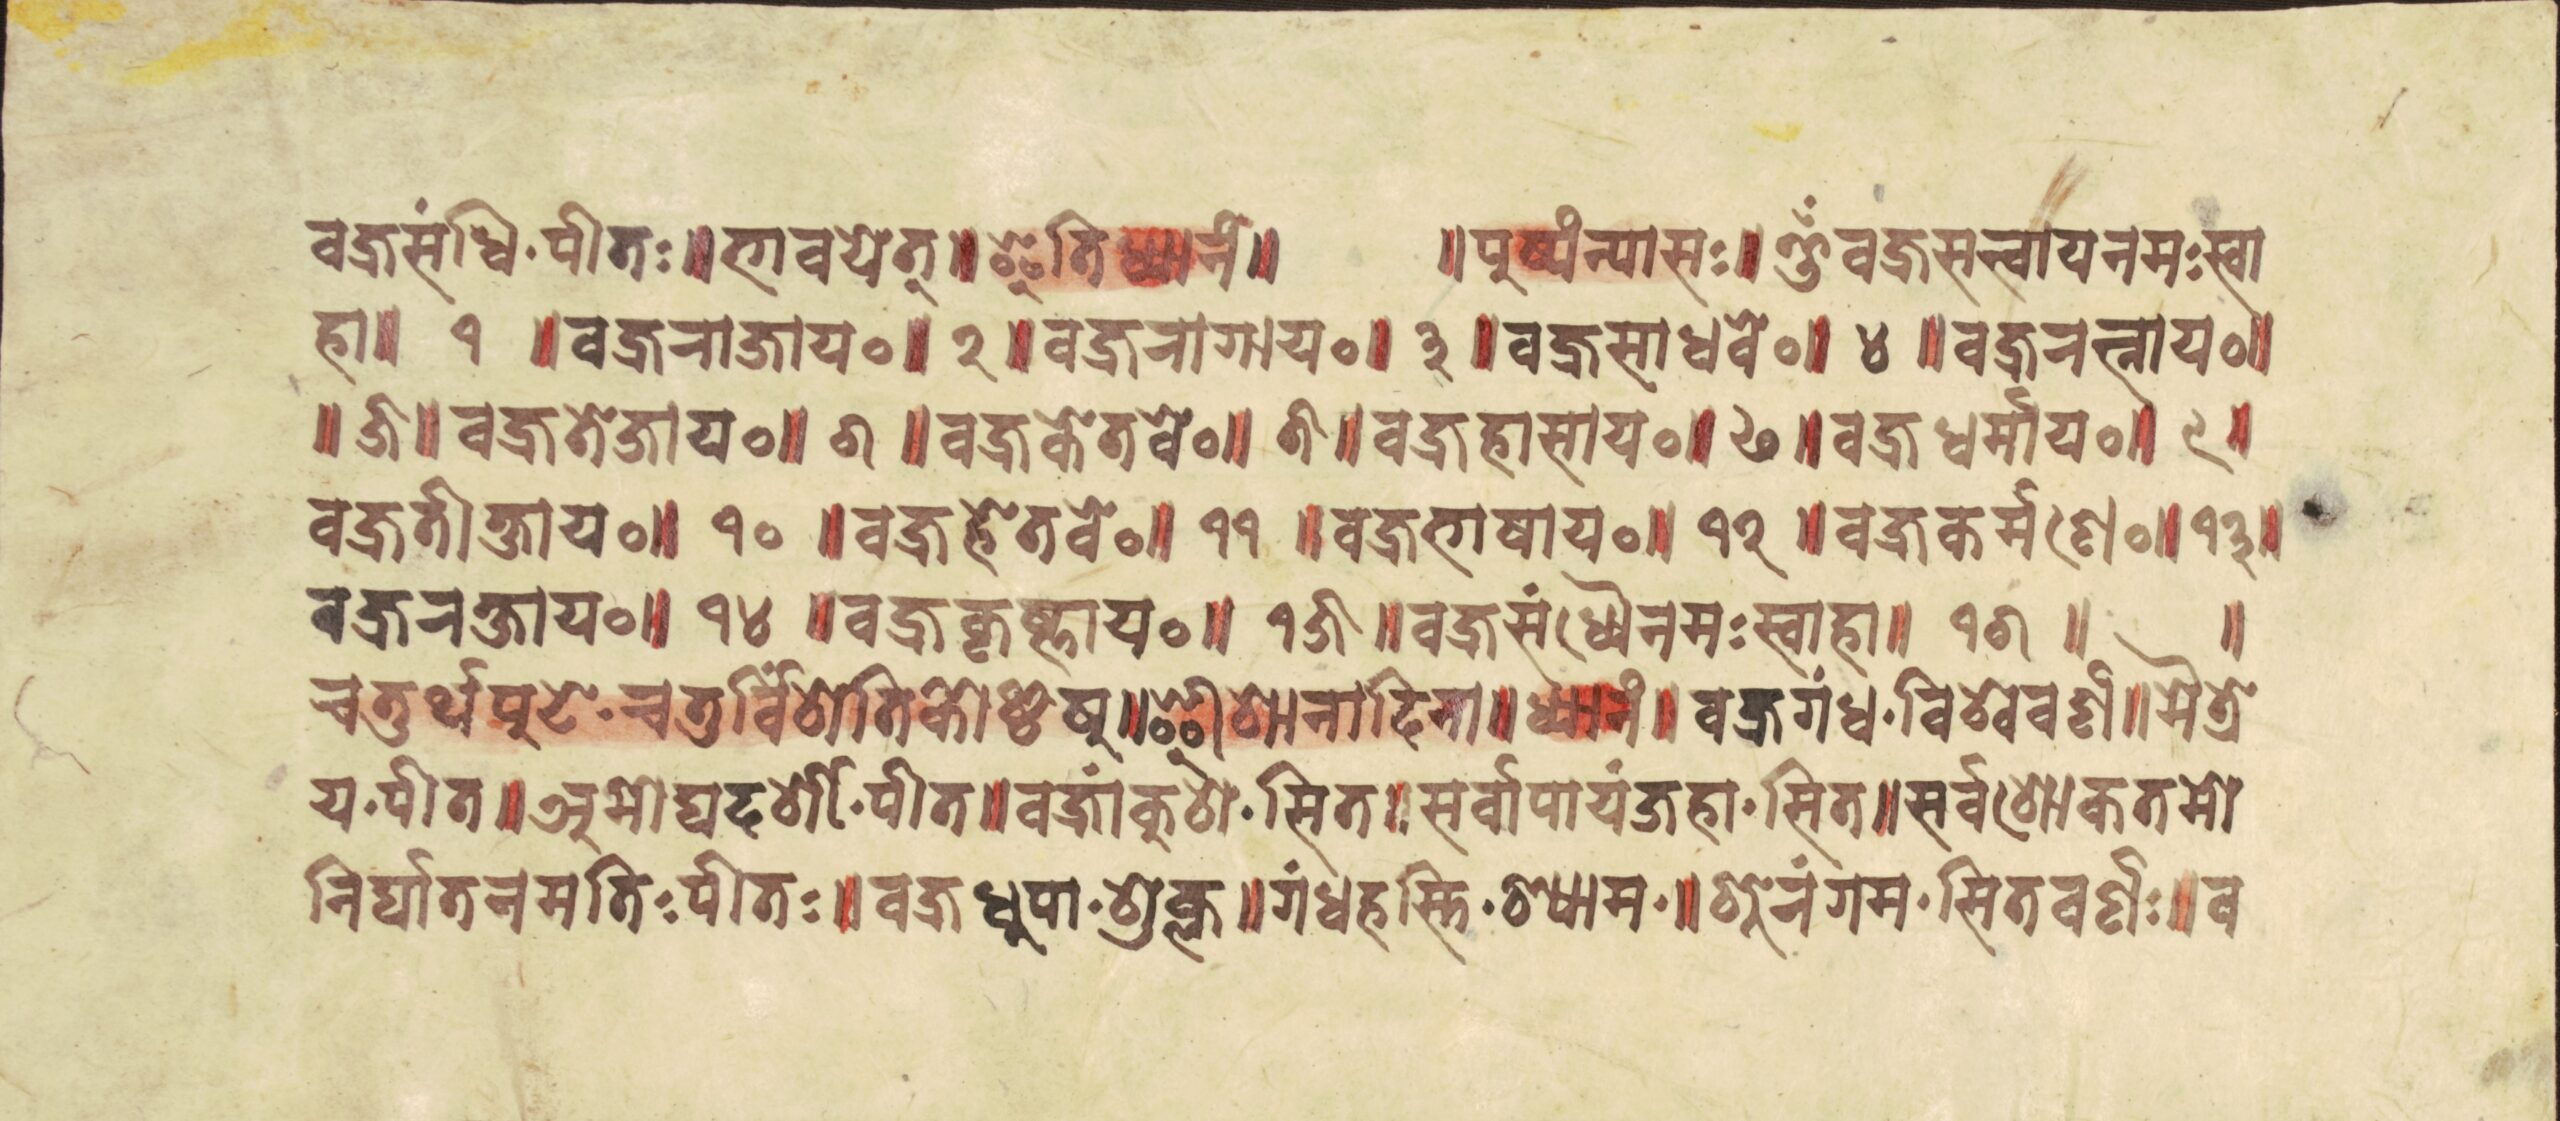 वज्रसंधि·पीतः॥भावयेत्॥इतिध्यानं॥ ॥पुष्पंन्यासः॥ॐवज्रसत्त्वायनमःस्वा
हा॥ १ ॥वज्रराजाय०॥ २॥वज्ररागाय०॥ ३॥वज्रसाधवे०॥ ४ ॥वज्ररत्नाय०॥
॥५॥वज्रतेजाय०॥ ६ ॥वज्रकेतवे०॥ ७॥वज्रहासाय०॥८॥वज्रधर्माय०॥ ९॥
वज्रतीक्ष्णाय०॥ १० ॥वज्रहेतवे०॥ ११ ॥वज्रभाषाय०॥ १२ ॥वज्रकर्मणे०॥१३॥
वज्ररक्षाय०॥ १४ ॥वज्र १५॥वज्रसंध्यैनमःस्वाहा॥ १६ ॥ ॥
चतुर्थपुटे·चतुर्विंशतिकोष्ठेषु॥ईशानादिना॥ध्यानं॥वज्रगंध·विश्ववर्ण॥मैत्रे
य·पीत॥अमोघदर्शी·पीत॥वज्रांकुश·सित॥सर्वापायंजहा·सित॥सर्वशोकतमो
निर्घातनमतिःपीतः॥वज्रधुपा·शुक्ल॥गंधहस्ति·श्याम·॥शुरंगम·सितवर्णः॥व